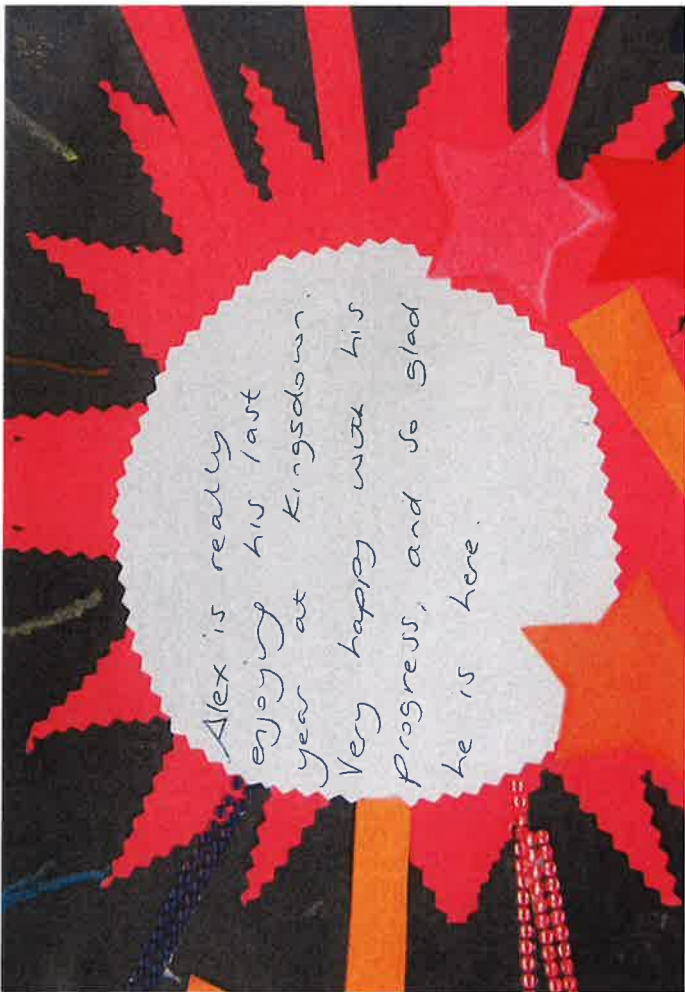 Alex is really
enjoying his last
year at Kingsdown.
Very happy with his
progress, and so glad
he is here.